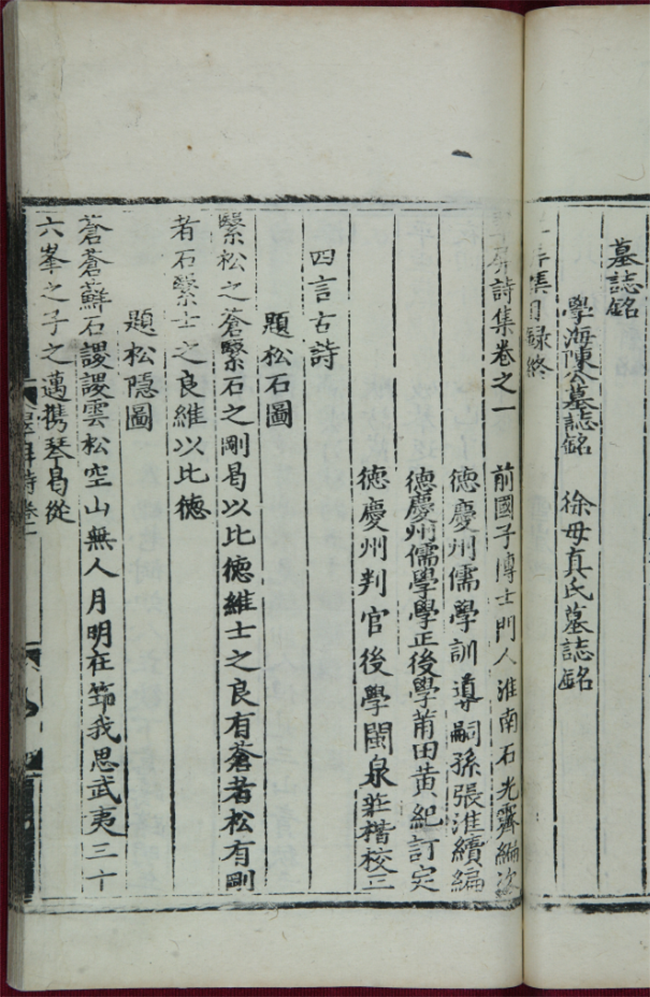 墓誌銘
學海陳公墓誌銘 徐母真氏墓誌銘
集目録終
詩集卷之一 前國子博士門人淮南石光霽編次
德慶州儒學訓導嗣孫張淮續編
德慶州儒學學正後學莆田黃紀訂定
德慶州判官後學閩泉莊楷校正
四言古詩
題松石圖
繄松之蒼繄石之剛曷以比德維士之良有蒼者松有剛
者石繄士之良維以比德
題松隱圖
蒼蒼蘚石謖謖雲松空山無人月明在筇我思武夷三十
六峯之子之邁携琴曷從